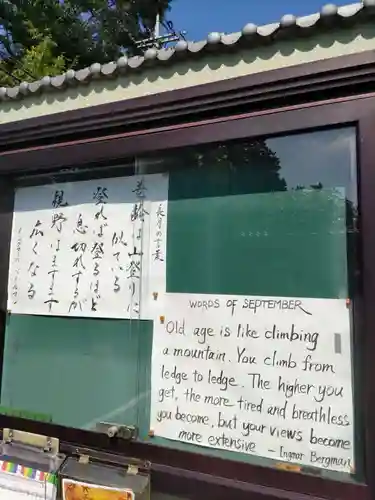 長月の言葉
老齢は山登りに
似ている
登れば登るほど
息切れするが
視野はますます
広くなる
イングマール・ベルイマン
WORDS OF SEPTEMBER
Old age is like climbing
a mountain. You climb from
ledge to ledge. The higher you
get, the more tired and breathless
you become, but your views become
more extensive - Ingmar Bergman